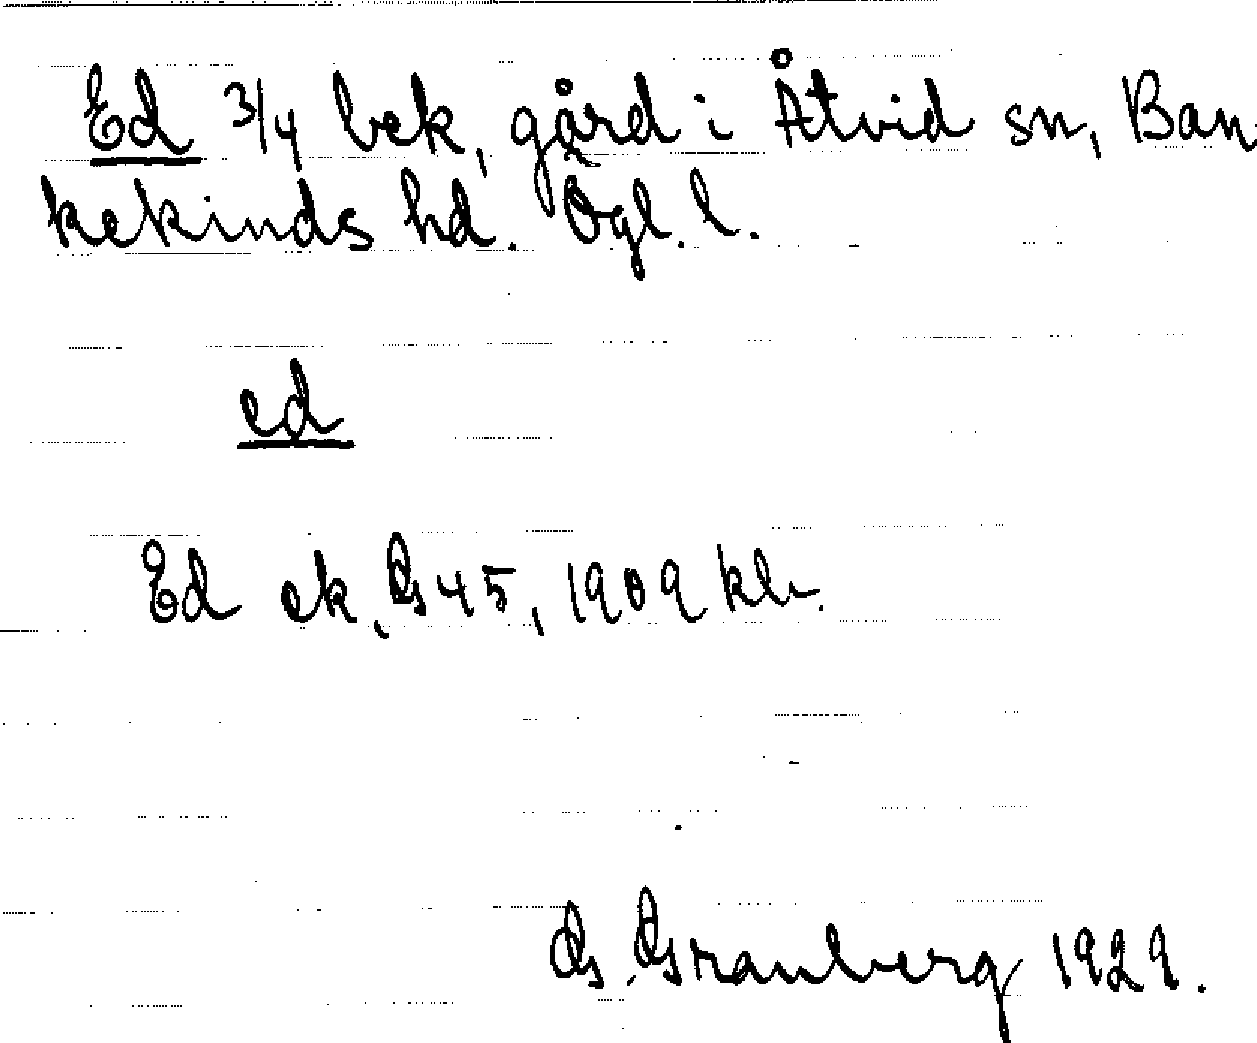 Ed 3/4 bek, gård i Åtvid sn, Ban
kekinds hd. Ögl. l.
ed
Ed ek, G 45, 1909 klr.
G. Granberg 1929.